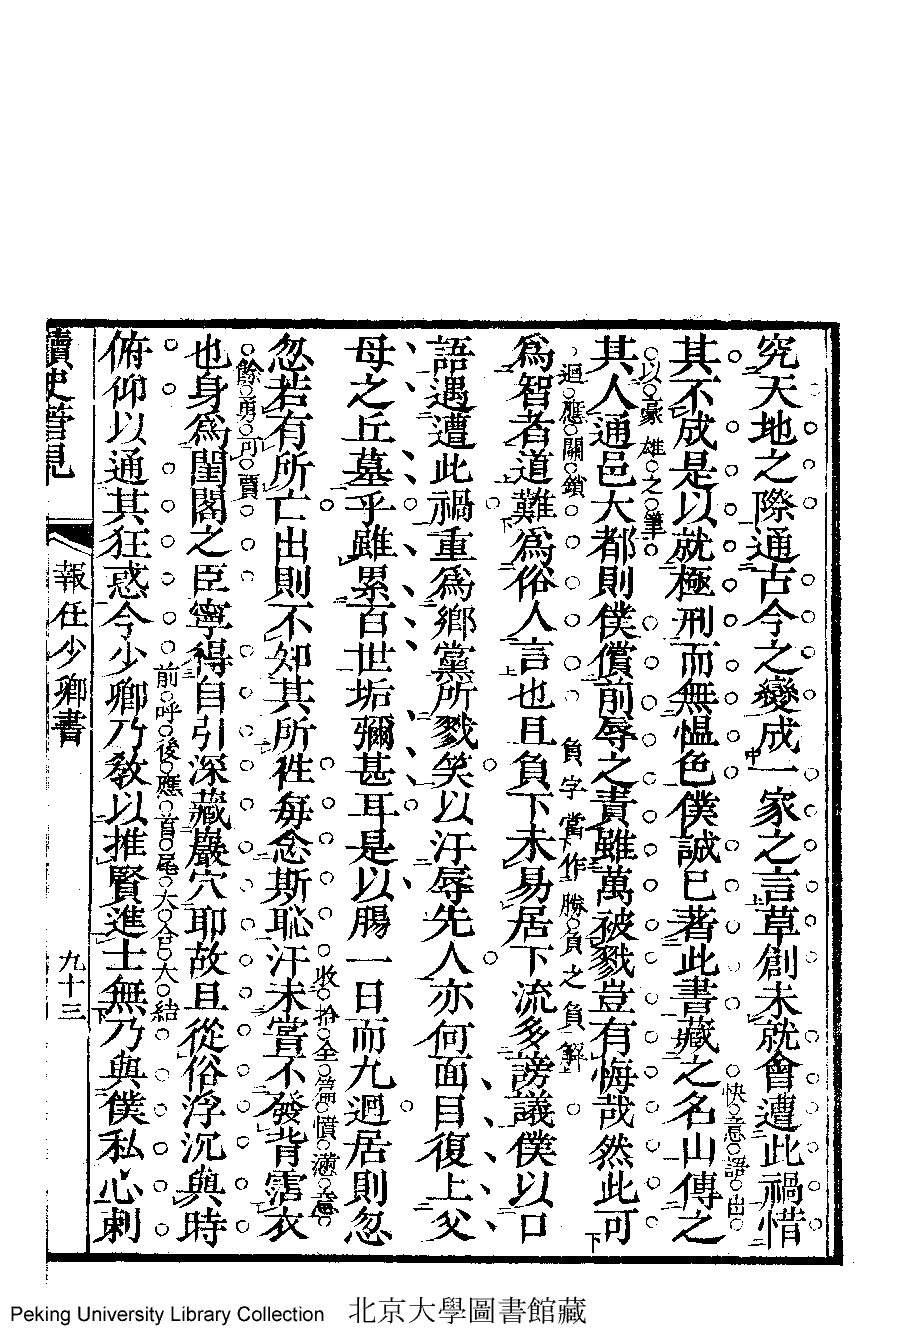 究天地之際通古今之變成一家之言草創未就會遭此禍惜
其不成是以就極刑而無慍色僕誠已著此書藏之名山傳之
快意語出
以豪雄之筆
其人通邑大都則僕償前辱之責雖萬被戮豈有悔哉然此可
迴應關鎖
負字當作勝負之負解
爲智者道難爲俗人言也且負下未易居下流多謗議僕以口
語遇遭此禍重爲鄉黨所戮笑以汙辱先人亦何面目復上父
母之丘墓乎雖累百世垢彌甚耳是以腸一日而九迴居則忽
收拾全篇憤懣意
忽若有所亡出則不知其所徃每念斯恥汗未嘗不發背霑衣
餘勇可賈
也身爲閨閤之臣寧得自引深藏巖穴耶故且從俗浮沉與時
前呼後應首尾大合大結
俯仰以通其狂惑今少卿乃敎以推賢進士無乃與僕私心剌
讀史管見
報任少卿書
九十三
Peking University Library Collection 北京大學圖書館藏